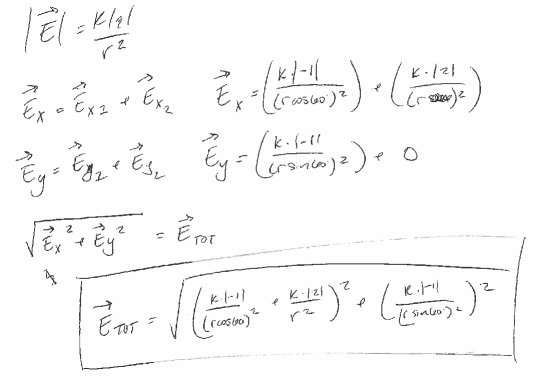 |E⃗| = k|q| / r²
E⃗x = E⃗x1 + E⃗x2   E⃗x = (k·|-1| / (r cos60)²) + (k·|2| / (r)²)
E⃗y = E⃗y1 + E⃗y2   E⃗y = (k·|-1| / (r sin60)²) + 0
√(E⃗x² + E⃗y²) = E⃗TOT
E⃗TOT = √((k·|-1| / (r cos60)² + k·|2| / r²)² + (k·|-1| / (r sin60)²)²)